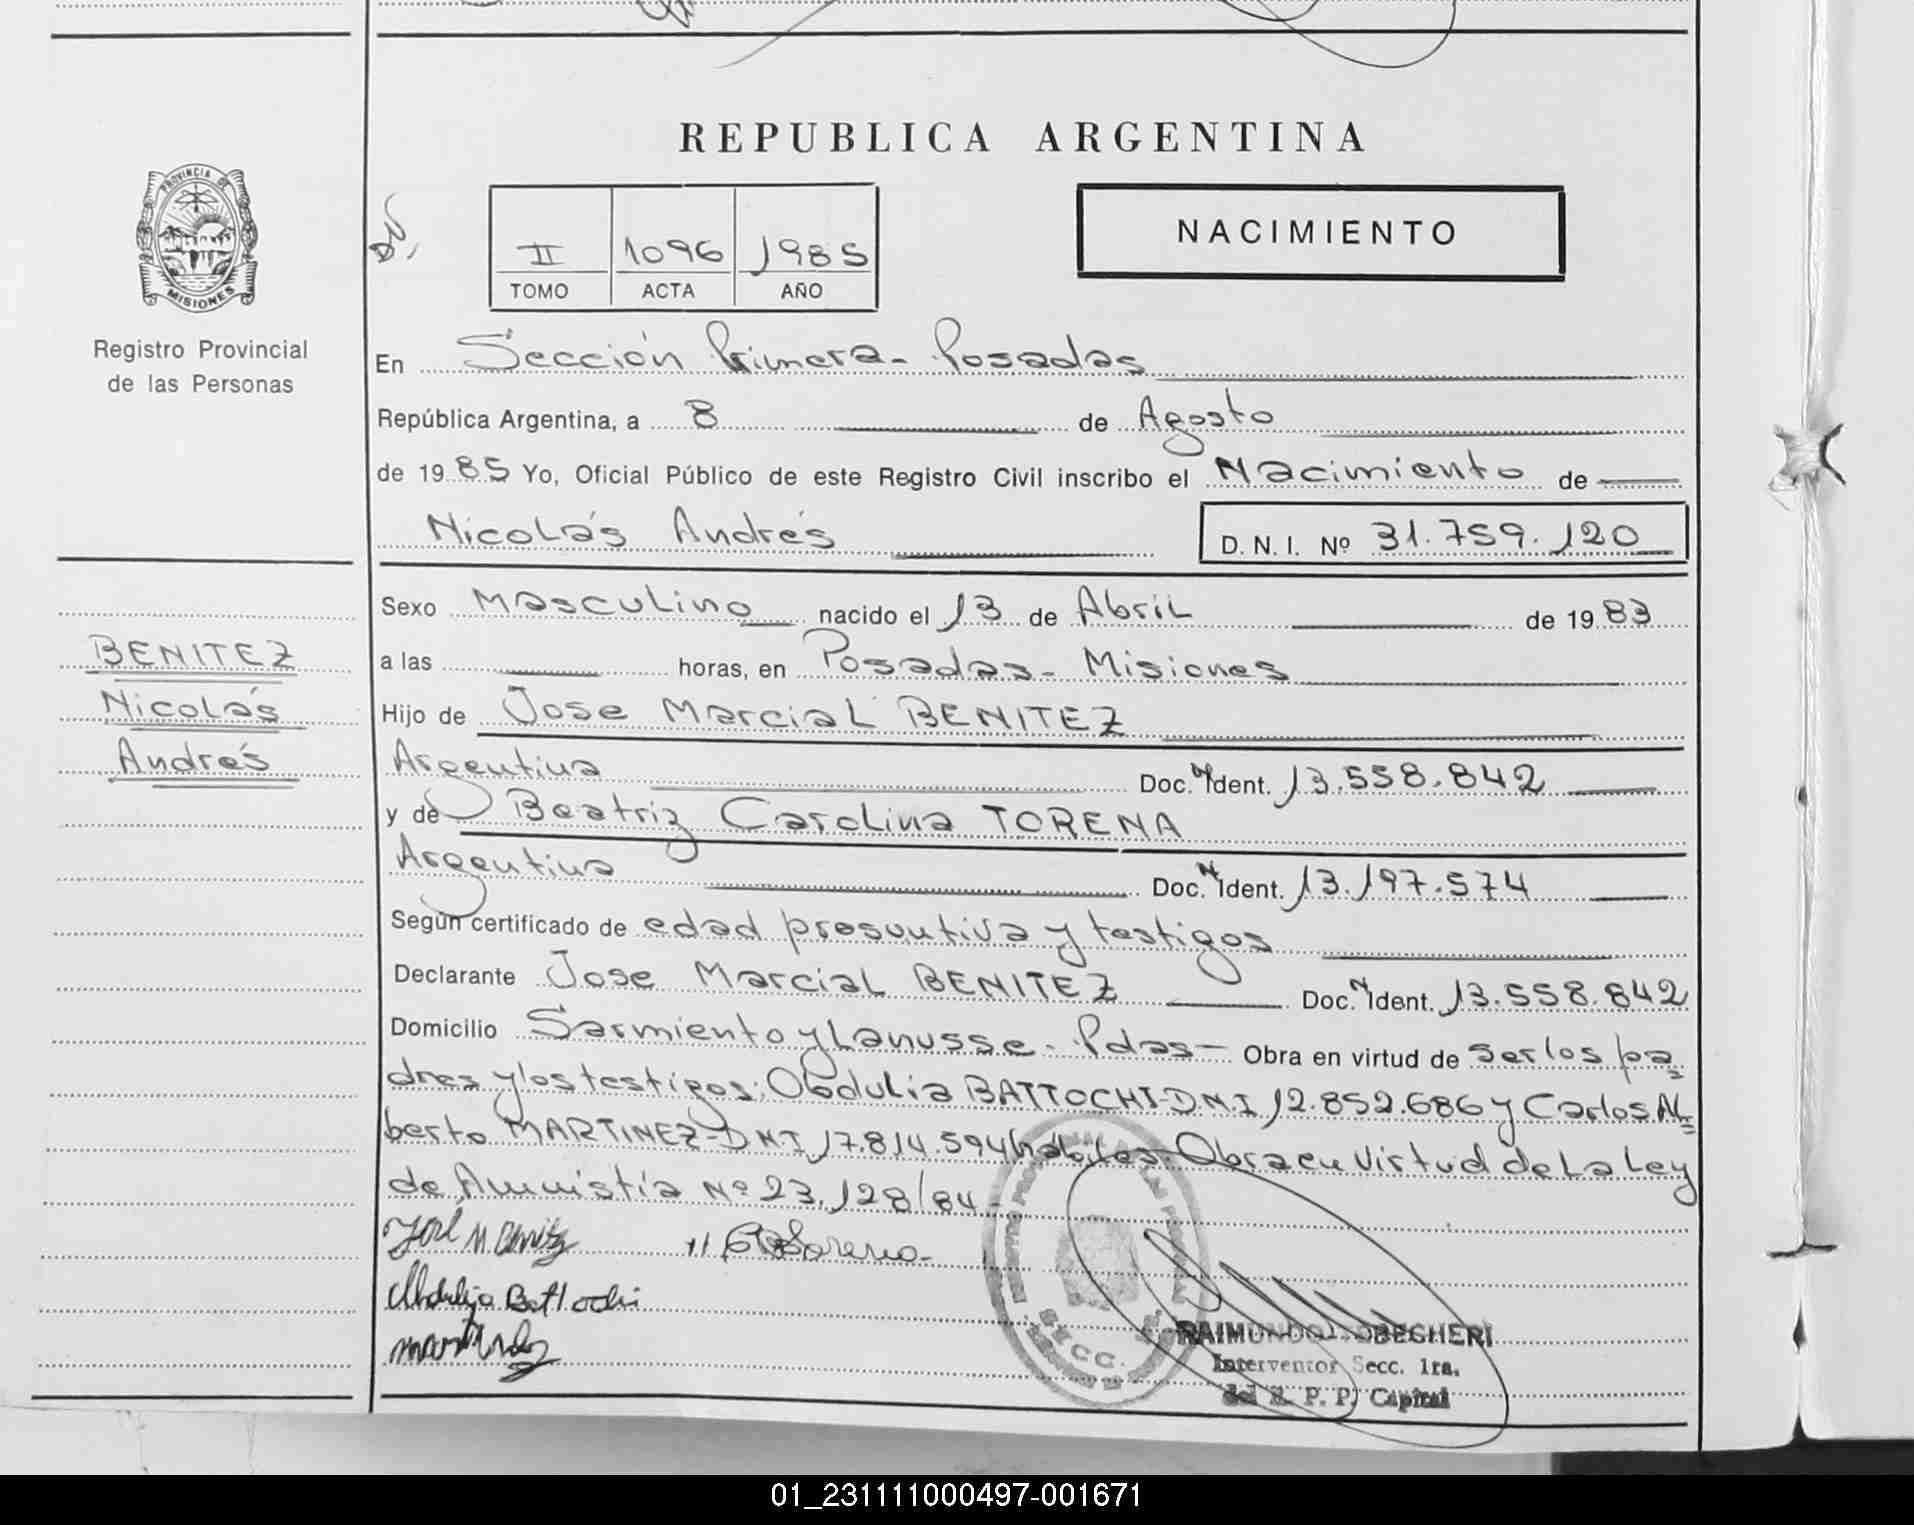 REPUBLICA ARGENTINA
PROVINCIA DE
MISIONES
Registro Provincial
de las Personas
II 1096 1985
TOMO ACTA AÑO
NACIMIENTO
En Sección Primera - Posadas
República Argentina, a 8 de Agosto
de 1985 Yo, Oficial Público de este Registro Civil inscribo el Nacimiento de
Nicolás Andrés D. N. I. Nº 31.759.120
BENITEZ
Nicolás
Andrés
Sexo Masculino nacido el 13 de Abril de 1983
a las horas, en Posadas - Misiones
Hijo de Jose Marcial BENITEZ
Argentina Doc. N Ident. 13.558.842
y de Beatriz Carolina TORENA
Argentina Doc. N Ident. 13.197.574
Según certificado de edad presuntiva y testigos
Declarante Jose Marcial BENITEZ Doc. N Ident. 13.558.842
Domicilio Sarmiento y Lanusse - Pdas - Obra en virtud de ser los pa=
dres y los testigos: Obdulia BATTOCHI - D.N.I 12.852.686 y Carlos Al=
berto MARTINEZ - DNI 17.814.594 hábiles - Obra en virtud de la Ley
de Amnistia Nº 23.128/84 -
José M Benitez
Obdulia Battochi
SECC.
Interventor Secc. 1ra.
del R. P. P. Capital
01_231111000497-001671